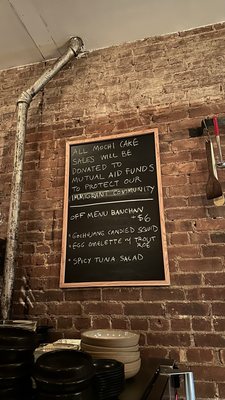 ALL MOCHI CAKE
SALES WILL BE
DONATED TO
MUTUAL AID FUNDS
TO PROTECT OUR
IMMIGRANT COMMUNITY
OFF MENU BANCHAN
+$6
• GOCHUJANG CANDIED SQUID
• EGG OMALETTE W/ TROUT
ROE
• SPICY TUNA SALAD